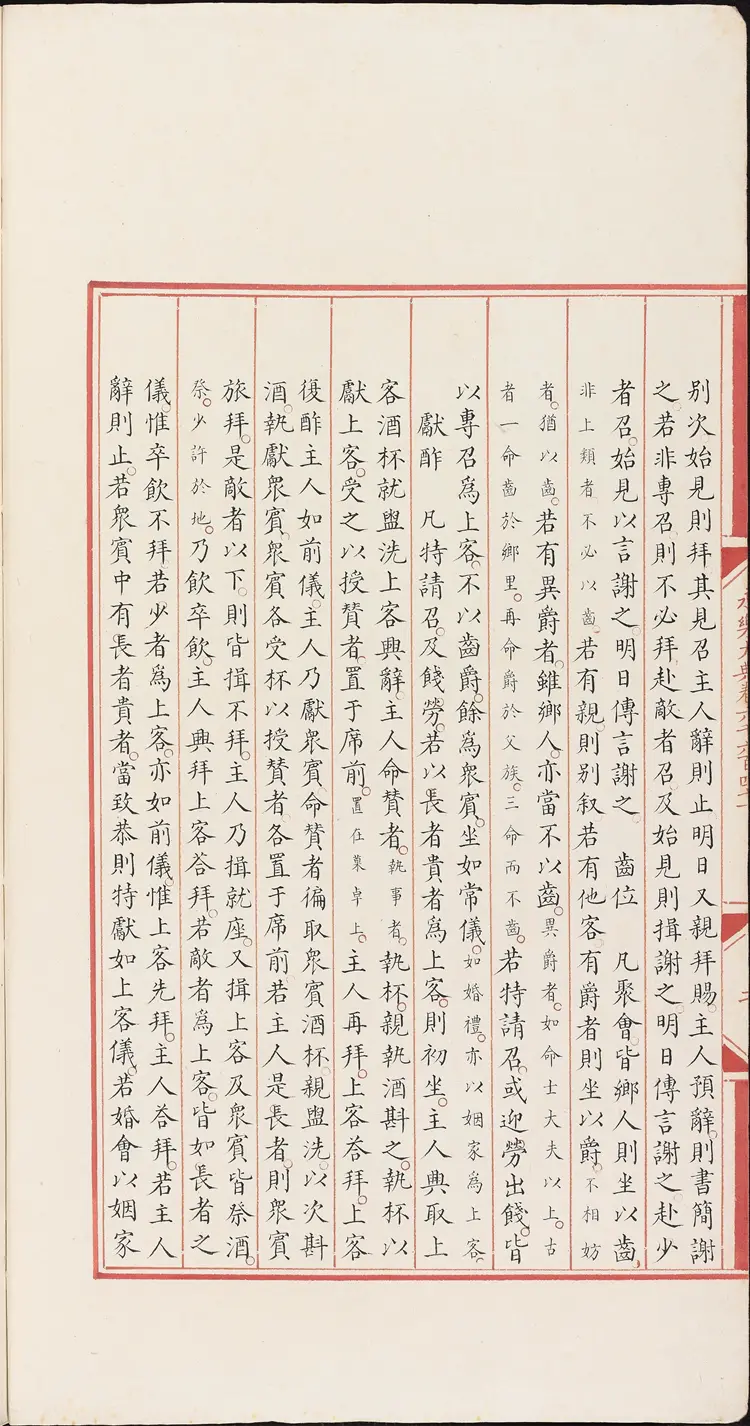 永樂大典卷六千六百四十
别次始見則拜其見召主人辭則止明日又親拜賜。主人預辭。則書簡謝
之。若非專召。則不必拜。赴敵者召。及始見則揖謝之。明日傳言謝之。赴少
者召。始見以言謝之。明日傳言謝之。 齒位 凡聚會。皆鄉人則坐以齒。
非上類者不必以齒。若有親。則别叙。若有他客。有爵者則坐以爵。不相妨
者。猶以齒。若有異爵者。雖鄉人。亦當不以齒。異爵者。如命士大夫以上。古
者一命齒於鄉里。再命爵於父族。三命而不齒。若特請召。或迎勞出餞。皆
以專召爲上客。不以齒爵。餘爲衆賓。坐如常儀。如婚禮。亦以姻家爲上客。
獻酢 凡特請召。及餞勞。若以長者貴者爲上客。則初坐。主人興取上
客酒杯就盥洗上客興辭。主人命贊者。執事者。執杯。親執酒斟之。執杯以
獻上客。受之以授贊者。置于席前。置在菓卓上。主人再拜。上客荅拜。上客
復酢主人如前儀。主人乃獻衆賓。命贊者徧取衆賓酒杯。親盥洗。以次斟
酒。執獻衆賓。衆賓各受杯以授贊者。各置于席前。若主人是長者。則衆賓
旅拜。是敵者以下。則皆揖不拜。主人乃揖就座。又揖上客及衆賓皆祭酒。
祭。少許於地。乃飲卒飲。主人興拜上客荅拜。若敵者爲上客。皆如長者之
儀。惟卒飲不拜。若少者爲上客。亦如前儀。惟上客先拜。主人荅拜。若主人
辭則止。若衆賓中有長者貴者。當致恭則特獻如上客儀。若婚會以姻家